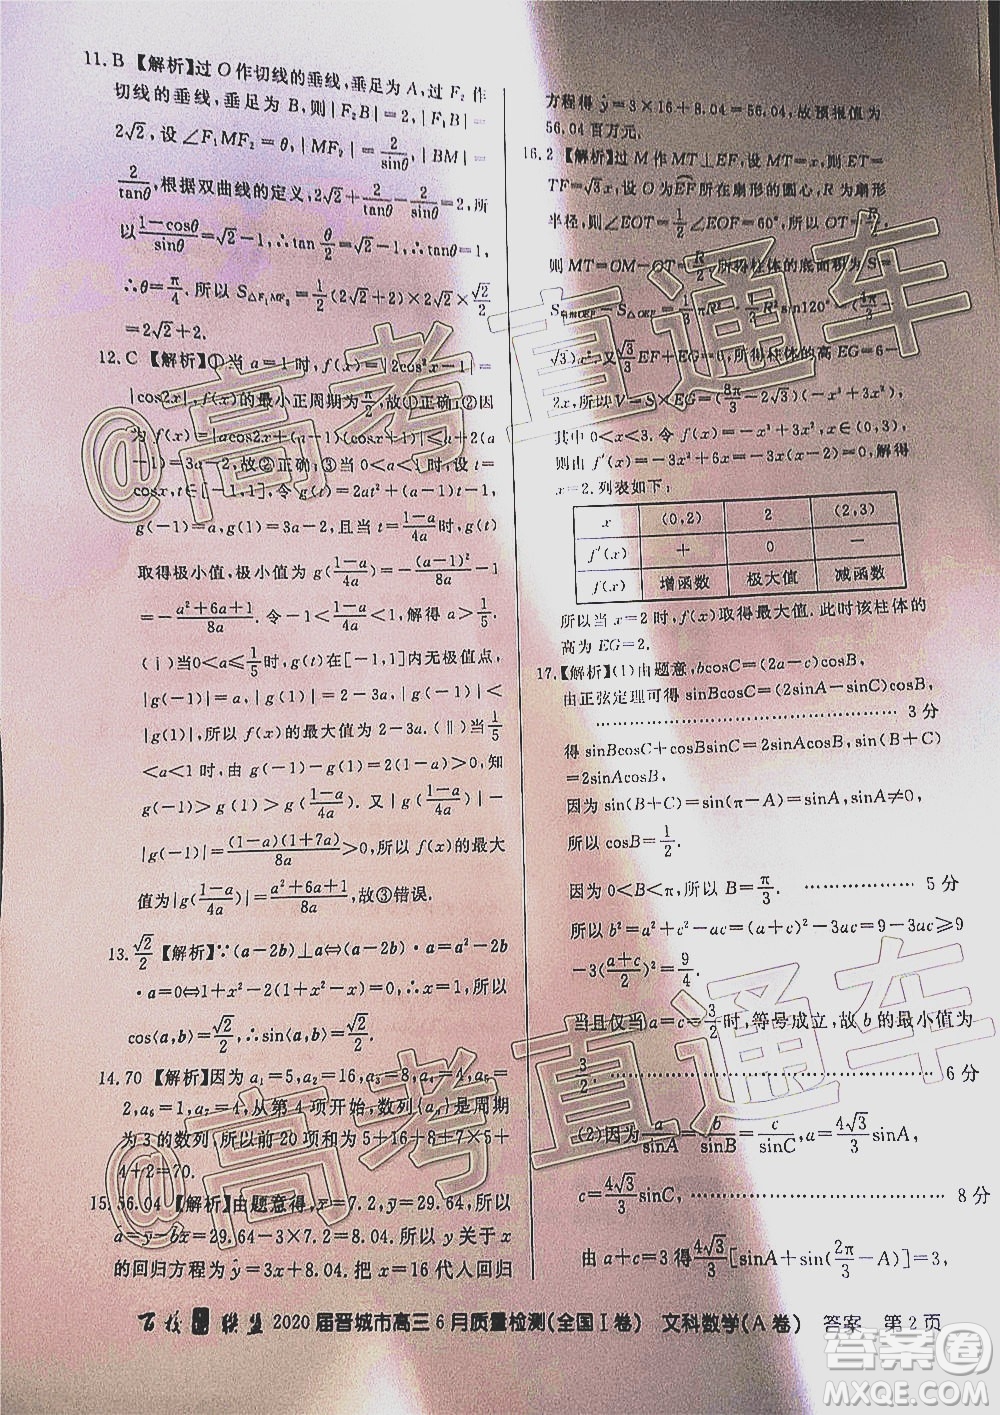 11. B 【解析】过 O 作切线的垂线,垂足为 A,过 F₂ 作
切线的垂线,垂足为 B,则|F₂B|=2,|F₁B|=
2√2,设 ∠F₁MF₂=θ,|MF₂|=2/sinθ,|BM|=
2/tanθ,根据双曲线的定义,2√2+2/tanθ-2/sinθ=2,所
以(1-cosθ)/sinθ=√2-1,∴tan θ/2=√2-1,∴tanθ=1,
∴θ=π/4.所以 S△F₁MF₂=1/2(2√2+2)×2√2×√2/2
=2√2+2.
12. C 【解析】①当 a=1 时,f(x)=|2cos²x-1|=
|cos2x|,f(x)的最小正周期为π/2,故①正确;②因
为 f(x)=|acos2x+(a-1)(cosx+1)|≤a+2(a
-1)=3a-2,故②正确;③当 0<a<1 时,设 t=
cosx,t∈[-1,1],令 g(t)=2at²+(a-1)t-1,
g(-1)=a,g(1)=3a-2,且当 t=(1-a)/4a 时,g(t)
取得极小值,极小值为 g((1-a)/4a)=-(a-1)²/8a-1
=-(a²+6a+1)/8a.令-1<(1-a)/4a<1,解得 a>1/5.
(ⅰ)当 0<a≤1/5时,g(t)在[-1,1]内无极值点,
|g(-1)|=a,|g(1)|=2-3a,|g(-1)|<
|g(1)|,所以 f(x)的最大值为 2-3a.(ⅱ)当1/5
<a<1 时,由 g(-1)-g(1)=2(1-a)>0,知
g(-1)>g(1)>g((1-a)/4a).又|g((1-a)/4a)|-
|g(-1)|=(1-a)(1+7a)/8a>0,所以 f(x)的最大
值为|g((1-a)/4a)|=(a²+6a+1)/8a,故③错误.
13. √2/2 【解析】∵(a-2b)⊥a⇔(a-2b)·a=a²-2b
·a=0⇔1+x²-2(1+x²-x)=0,所以
cos⟨a,b⟩=√2/2,∴sin⟨a,b⟩=√2/2.
14. 70 【解析】因为 a₁=5,a₂=16,a₃=1,a₄=4,a₅=
2,a₆=1,a₇=4,从第 4 项开始,数列{aₙ}是周期
为 3 的数列,所以前 20 项和为 5+16+1+7×5+
4+2=70.
15. 56.04 【解析】由题意得,x̄=7.2,ȳ=29.64,所以
â=ȳ-b̂x̄=29.64-3×7.2=8.04,所以 y 关于 x
的回归方程为 ŷ=3x+8.04.把 x=16 代人回归
方程得 ŷ=3×16+8.04=56.04,故预报值为
56.04 百万元.
16. 2 【解析】过 M 作 MT⊥EF,设 MT=x,则 ET=
TF=√3x,设 O 为EF所在扇形的圆心,R 为扇形
半径,则∠EOT=1/2∠EOF=60°,所以 OT=R/2,
则 MT=OM-OT=R/2,所以柱体的底面积为 S=
S扇形OEF-S△OEF=1/3πR²-1/2R²sin120°=(4π/3-
√3)x².又√3/3EF+EG=6,所以柱体的高 EG=6-
2x,所以 V=S×EG=(8π/3-2√3)(-x³+3x²),
其中 0<x<3.令 f(x)=-x³+3x²,x∈(0,3),
则由 f′(x)=-3x²+6x=-3x(x-2)=0,解得
x=2.列表如下:
x (0,2) 2 (2,3)
f′(x) + 0 -
f(x) 增函数 极大值 减函数
所以当 x=2 时,f(x)取得最大值.此时该柱体的
高为 EG=2.
17.【解析】(1)由题意,bcosC=(2a-c)cosB,
由正弦定理可得 sinBcosC=(2sinA-sinC)cosB,
………………………… 3 分
得 sinBcosC+cosBsinC=2sinAcosB,sin(B+C)=
2sinAcosB,
因为 sin(B+C)=sin(π-A)=sinA,sinA≠0,
所以 cosB=1/2.
因为 0<B<π,所以 B=π/3. ………………… 5 分
所以 b²=a²+c²-ac=(a+c)²-3ac=9-3ac≥9
-3((a+c)/2)²=9/4.
当且仅当 a=c=3/2时,等号成立,故 b 的最小值为
3/2. …………………………… 6 分
(2)因为a/sinA=b/sinB=c/sinC,a=4√3/3 sinA,
c=4√3/3 sinC, ………………………… 8 分
由 a+c=3 得4√3/3[sinA+sin(2π/3-A)]=3,
百校联盟 2020 届晋城市高三 6 月质量检测(全国 I 卷) 文科数学(A 卷) 答案 第 2 页
@高考直通车
@高考直通车
答案圈
MXQE.COM